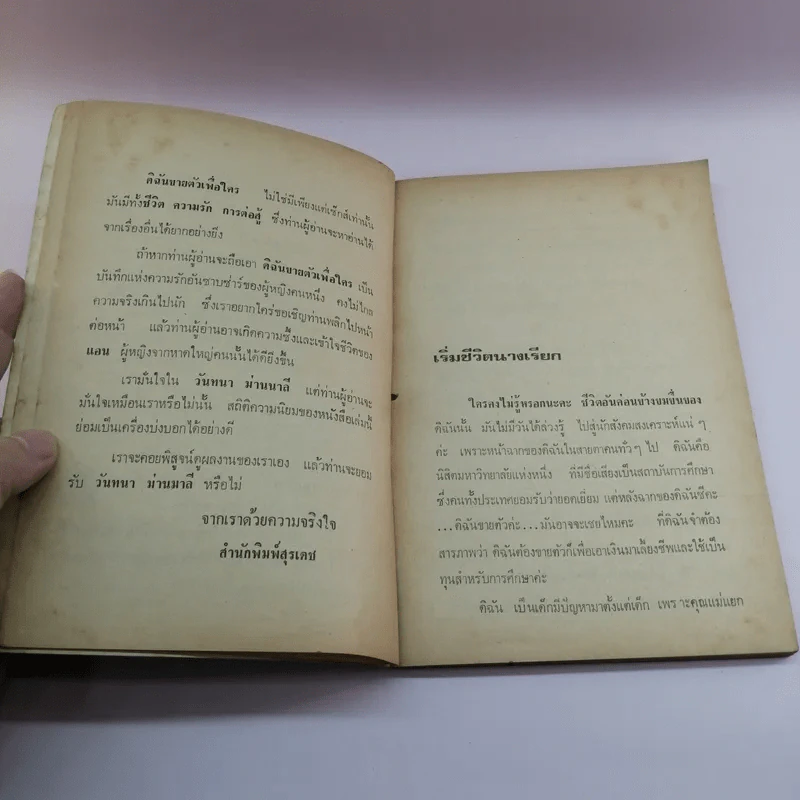 ดิฉันขายตัวเพื่อใคร ไม่ใช่มีเพียงแต่เซ็กส์เท่านั้น
มันมีทั้งชีวิต ความรัก การต่อสู้ ซึ่งท่านผู้อ่านจะหาอ่านได้
จากเรื่องอื่นได้ยากอย่างยิ่ง
ถ้าหากท่านผู้อ่านจะถือเอา ดิฉันขายตัวเพื่อใคร เป็น
บันทึกแห่งความรักอันซาบซ่าร์ของผู้หญิงคนหนึ่ง คงไม่ไกล
ความจริงเกินไปนัก ซึ่งเราอยากใคร่ขอเชิญท่านพลิกไปหน้า
ต่อหน้า แล้วท่านผู้อ่านอาจเกิดความซึ้งและเข้าใจชีวิตของ
แอน ผู้หญิงจากหาดใหญ่คนนั้นได้ดียิ่งขึ้น
เรามั่นใจใน วันทนา ม่านมาลี แต่ท่านผู้อ่านจะ
มั่นใจเหมือนเราหรือไม่นั้น สถิติความนิยมของหนังสือเล่มนี้
ย่อมเป็นเครื่องบ่งบอกได้อย่างดี
เราจะคอยพิสูจน์ดูผลงานของเราเอง แล้วท่านจะยอม
รับ วันทนา ม่านมาลี หรือไม่
จากเราด้วยความจริงใจ
สำนักพิมพ์สุรเดช
เริ่มชีวิตนางเรียก
ใครคงไม่รู้หรอกนะคะ ชีวิตอันค่อนข้างขมขื่นของ
ดิฉันนั้น มันไม่มีวันได้ล่วงรู้ ไปสู่นักสังคมสงเคราะห์แน่ ๆ
ค่ะ เพราะหน้าฉากของดิฉันในสายตาคนทั่ว ๆ ไป ดิฉันคือ
นิสิตมหาวิทยาลัยแห่งหนึ่ง ที่มีชื่อเสียงเป็นสถาบันการศึกษา
ซึ่งคนทั้งประเทศยอมรับว่ายอดเยี่ยม แต่หลังฉากของดิฉันซีคะ
...ดิฉันขายตัวค่ะ...มันอาจจะเชยไหมคะ ที่ดิฉันจำต้อง
สารภาพว่า ดิฉันต้องขายตัวก็เพื่อเอาเงินมาเลี้ยงชีพและใช้เป็น
ทุนสำหรับการศึกษาค่ะ
ดิฉัน เป็นเด็กมีปัญหามาตั้งแต่เด็ก เพราะคุณแม่แยก